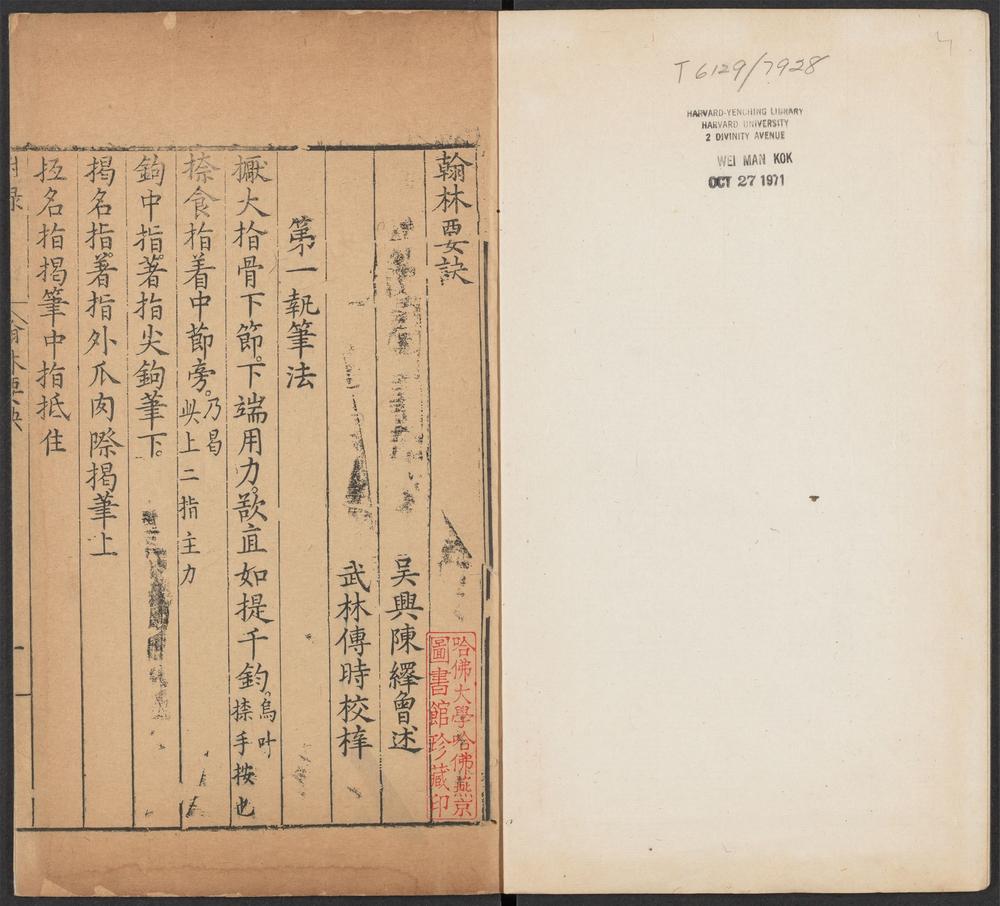 T 6129/7928
HARVARD-YENCHING LIBRARY
HARVARD UNIVERSITY
2 DIVINITY AVENUE
WEI MAN KOK
OCT 27 1971
翰林要訣
哈佛大學哈佛燕京
圖書館珍藏印
吴興陳繹曾述
武林傅時校梓
第一執筆法
擫大指骨下節下端用力欲直如提千鈞烏叶
捺手按也
捺食指着中節旁乃曷
此上二指主力
鉤中指著指尖鉤筆下
揭名指著指外爪肉際揭筆上
抵名指揭筆中指抵住
附録